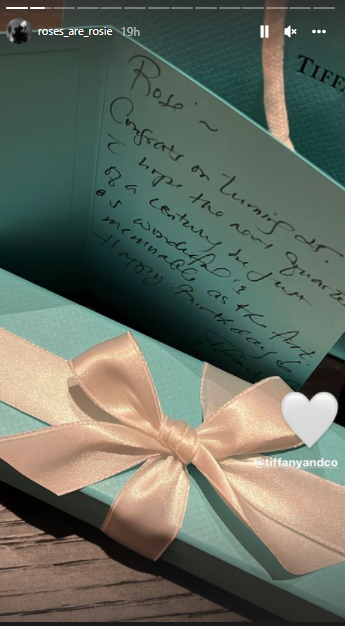 roses_are_rosie 19h
TIFF
Rosé ~
Congrats on turning 25.
I hope the next quarter
of a century be just
as wonderful &
memorable as the first.
Happy Birthday!
@tiffanyandco